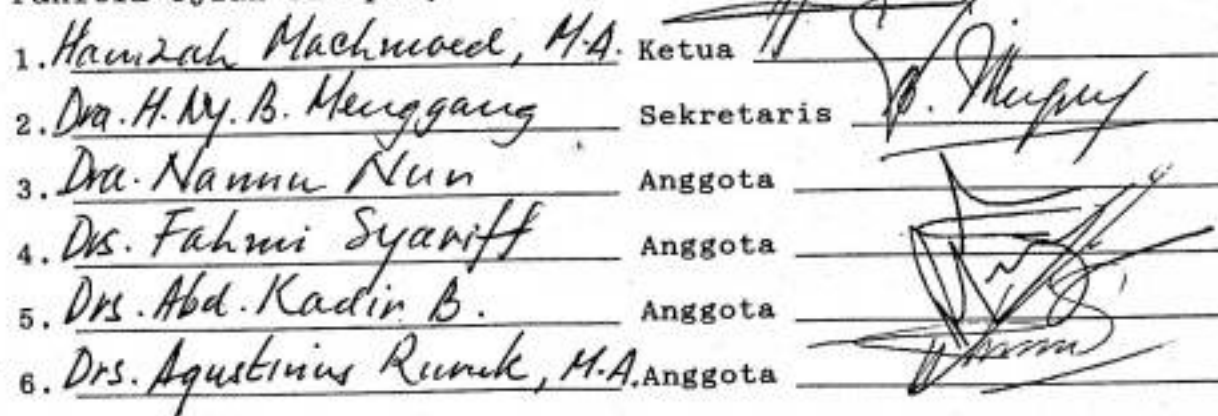 1. Hamzah Machmoed, M.A. Ketua
2. Dra. H. Ny. B. Menggang Sekretaris
3. Dra. Nannu Nur Anggota
4. Drs. Fahmi Syariff Anggota
5. Drs. Abd. Kadir B. Anggota
6. Drs. Agustinus Ruruk, M.A. Anggota